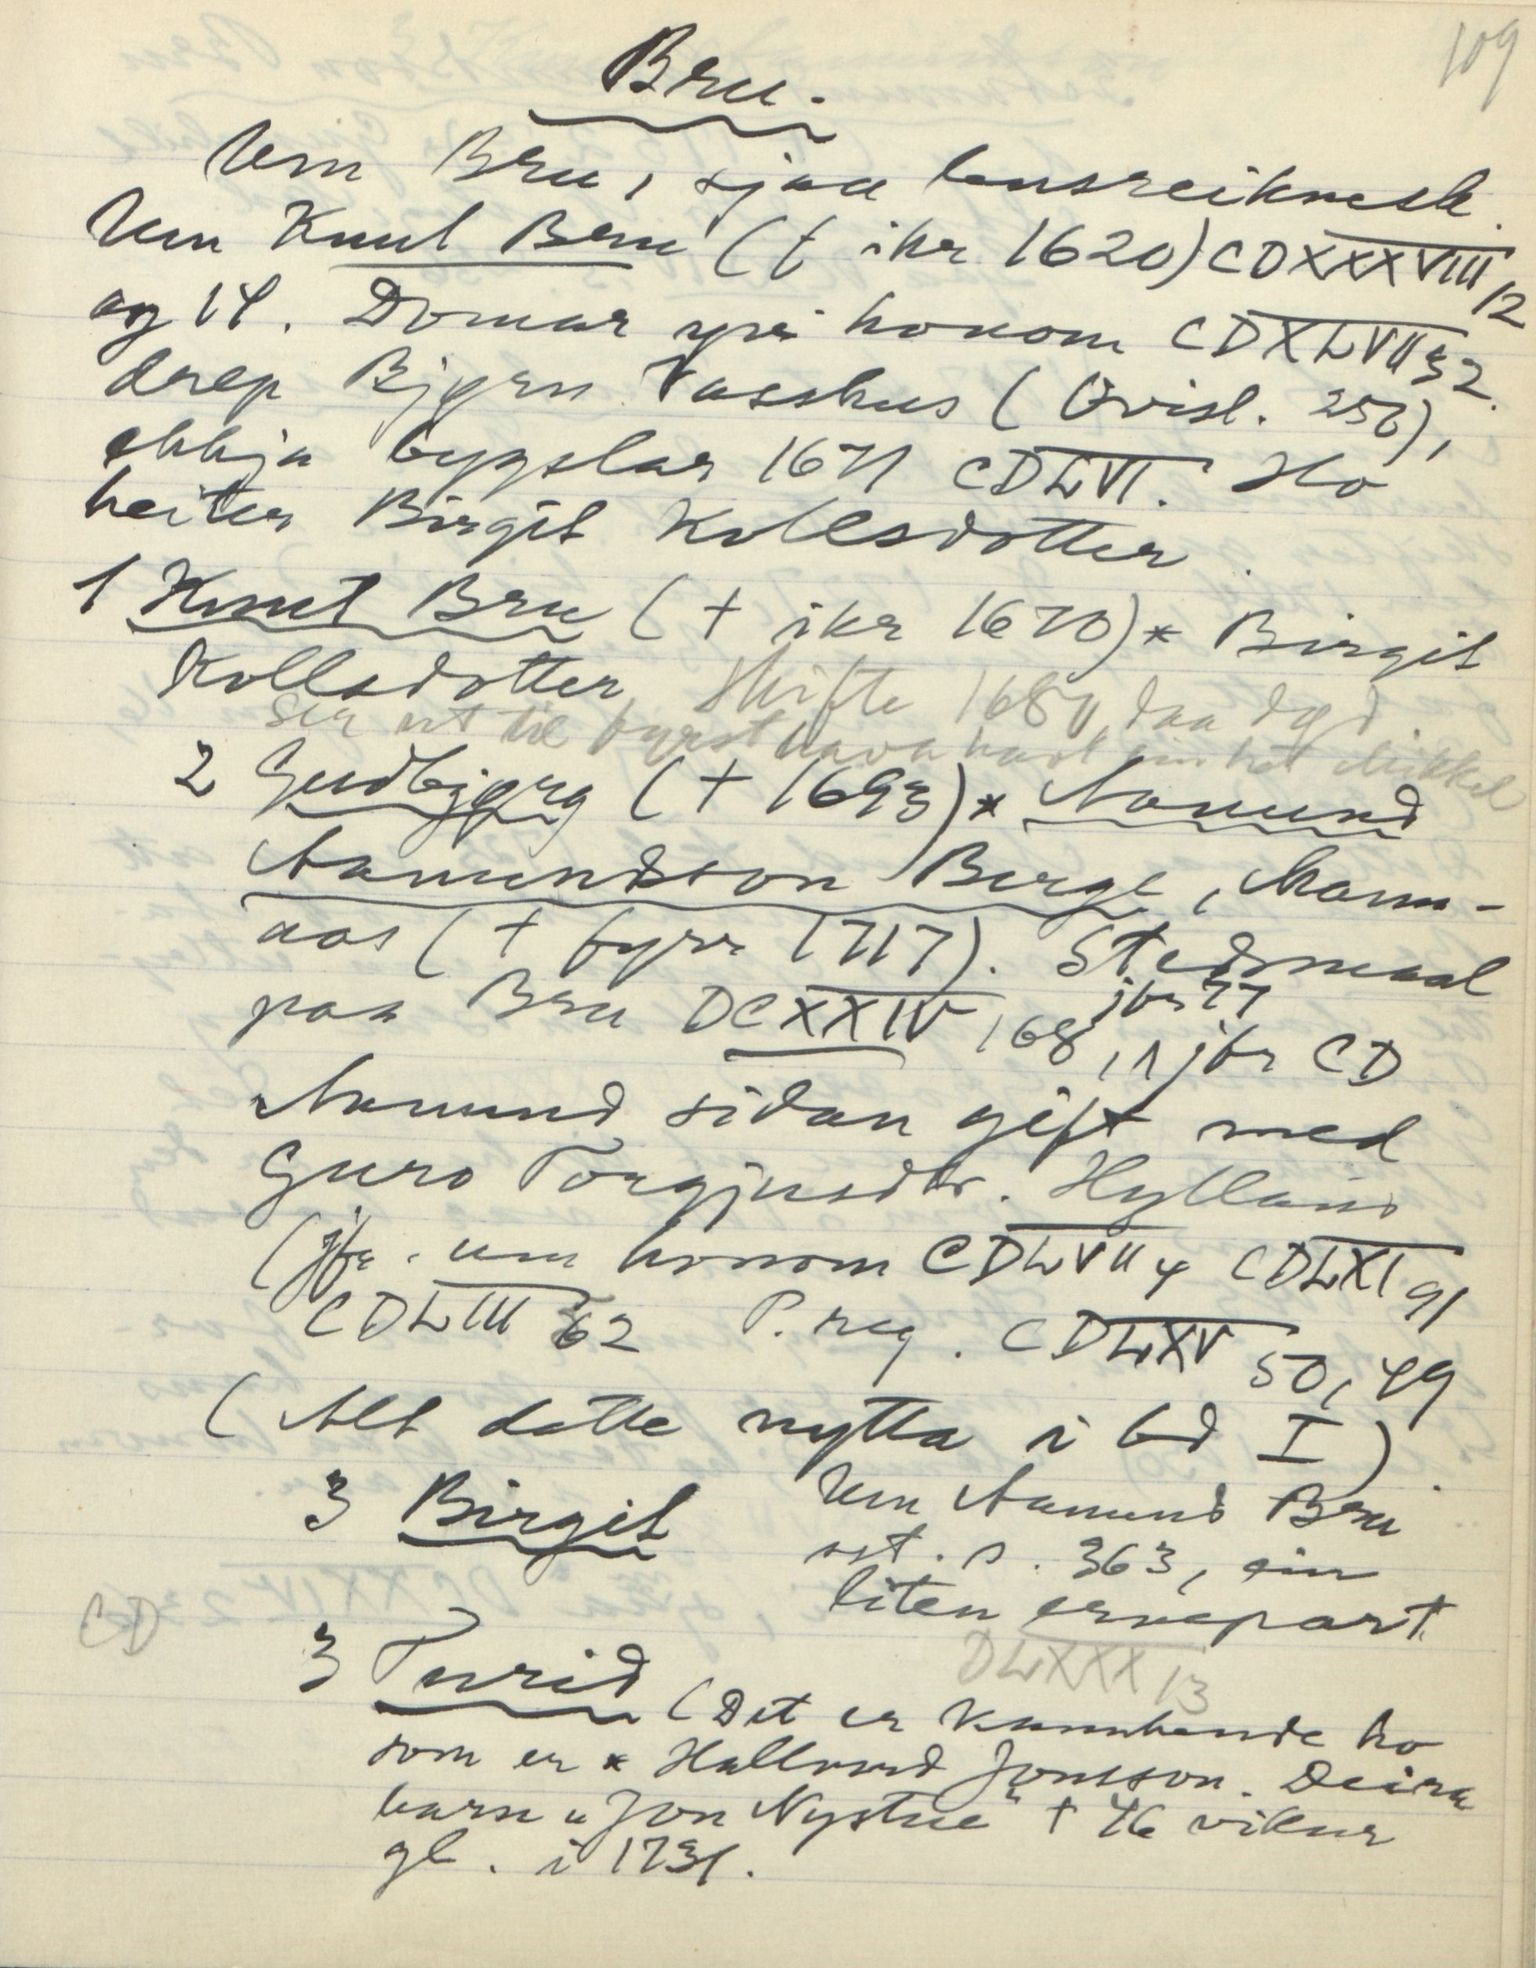 109
Bru.
Um Bru, sjaa lensreiknesk.
Um Knut Bru († ikr 1620) CDXXXVIII 12
og 14. Domar yvi honom CDXLVII 32.
drep Bjørn Vasshus (Øvisl. 256),
ekkja bygslar 1671 CDLVI. Ho
heiter Birgit Kollsdotter.
1 Knut Bru († ikr 1670) * Birgit
Kollsdotter Skifte 1680, daa død
Ser ut til fyrst hava havt ein het Mikkel
2 Gudbjørg († 1693) * Aamund
Aamundson Berge, Mann-
aas († fyrr 1717). Stedsmaal
paa Bru DCXXIV 168, 1 jfr CD
jfr 77
Aamund sidan gift med
Guro Torgjusdtr. Hylland
(jfr. um honom CDLVII 4 CDLXI 91
CDLIII 62 P. reg. CDLXV 50, 49
(Alt dette nytta i bd I)
3 Birgit
Um Aamund Bru
ost. s. 363, ein
liten ervepart
DLXXX 13
CD
3 Turid (Det er kannhende ho
som er * Hallvord Jonsson. Deira
barn "Jon Nystue" † 46 vikur
gl. i 1731.